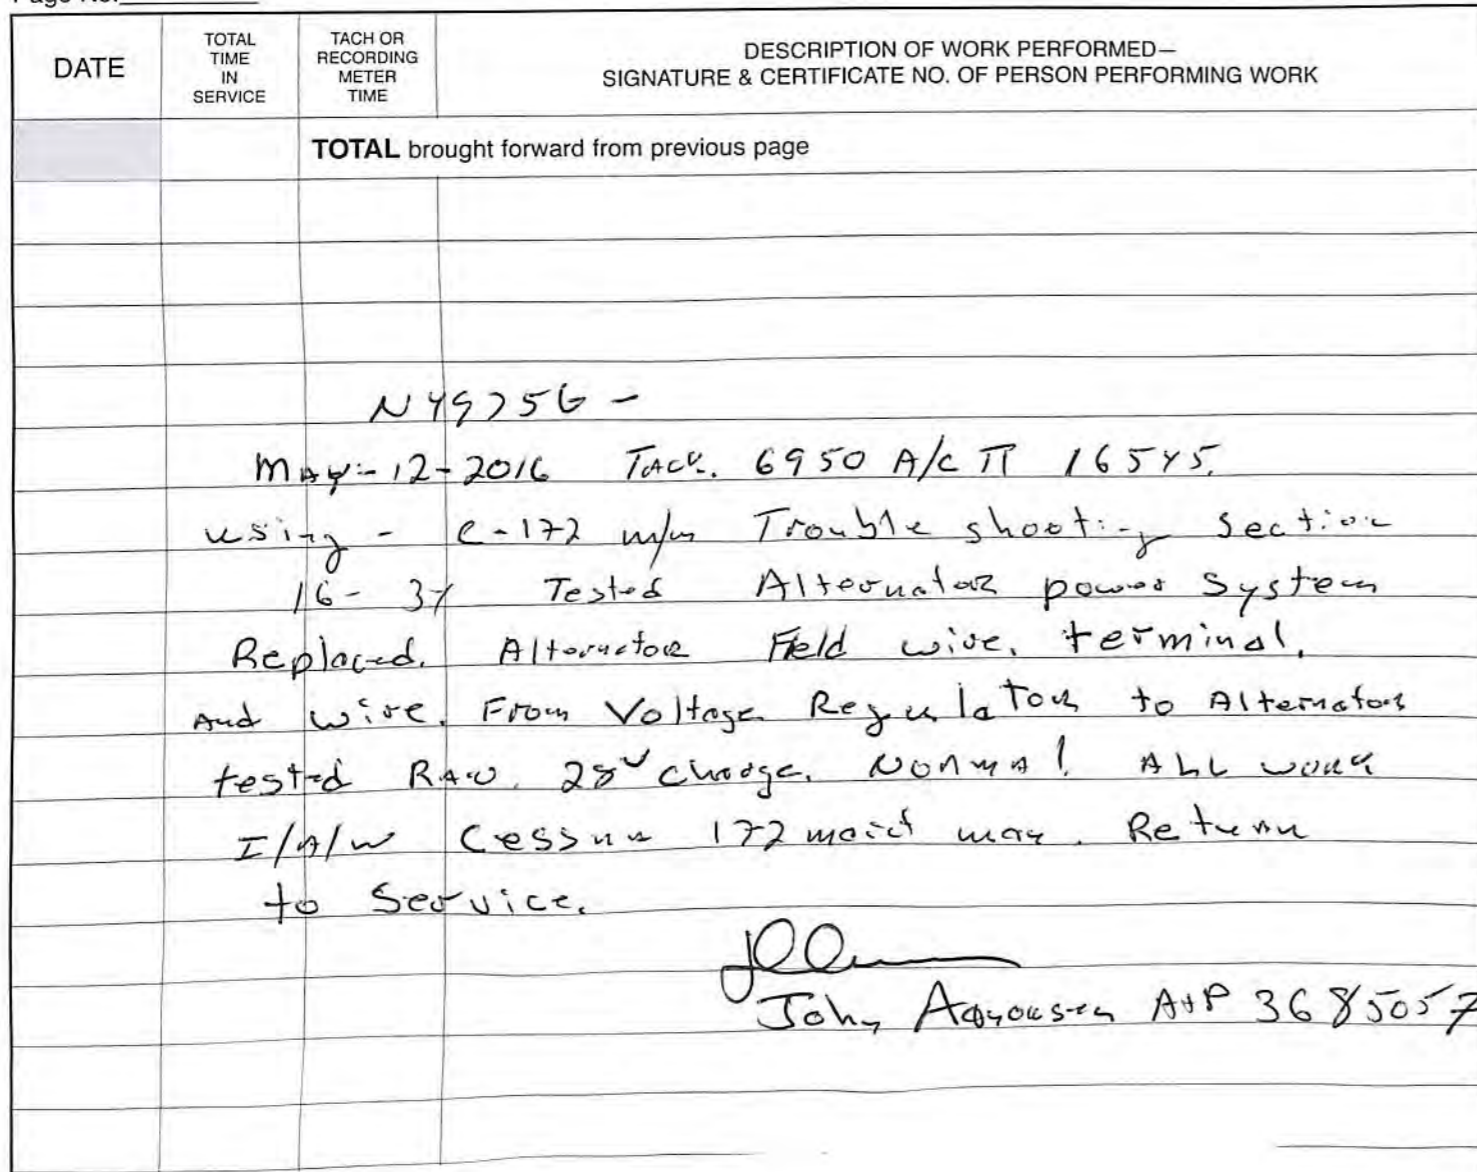 DATE
TOTAL TIME IN SERVICE
TACH OR RECORDING METER TIME
DESCRIPTION OF WORK PERFORMED—
SIGNATURE & CERTIFICATE NO. OF PERSON PERFORMING WORK
TOTAL brought forward from previous page
May-12-2016 Tach. 6950 A/C TT
using - C-172 m/m Trouble shooting section
16- Tested Alternator power system
Replaced. Alternator Field wire. terminal.
And wire. From Voltage Regulator to Alternator
tested 28v charge. Normal. ALL work
I/A/W Cessna 172 man. Return
to Service.
John A&P 3685057